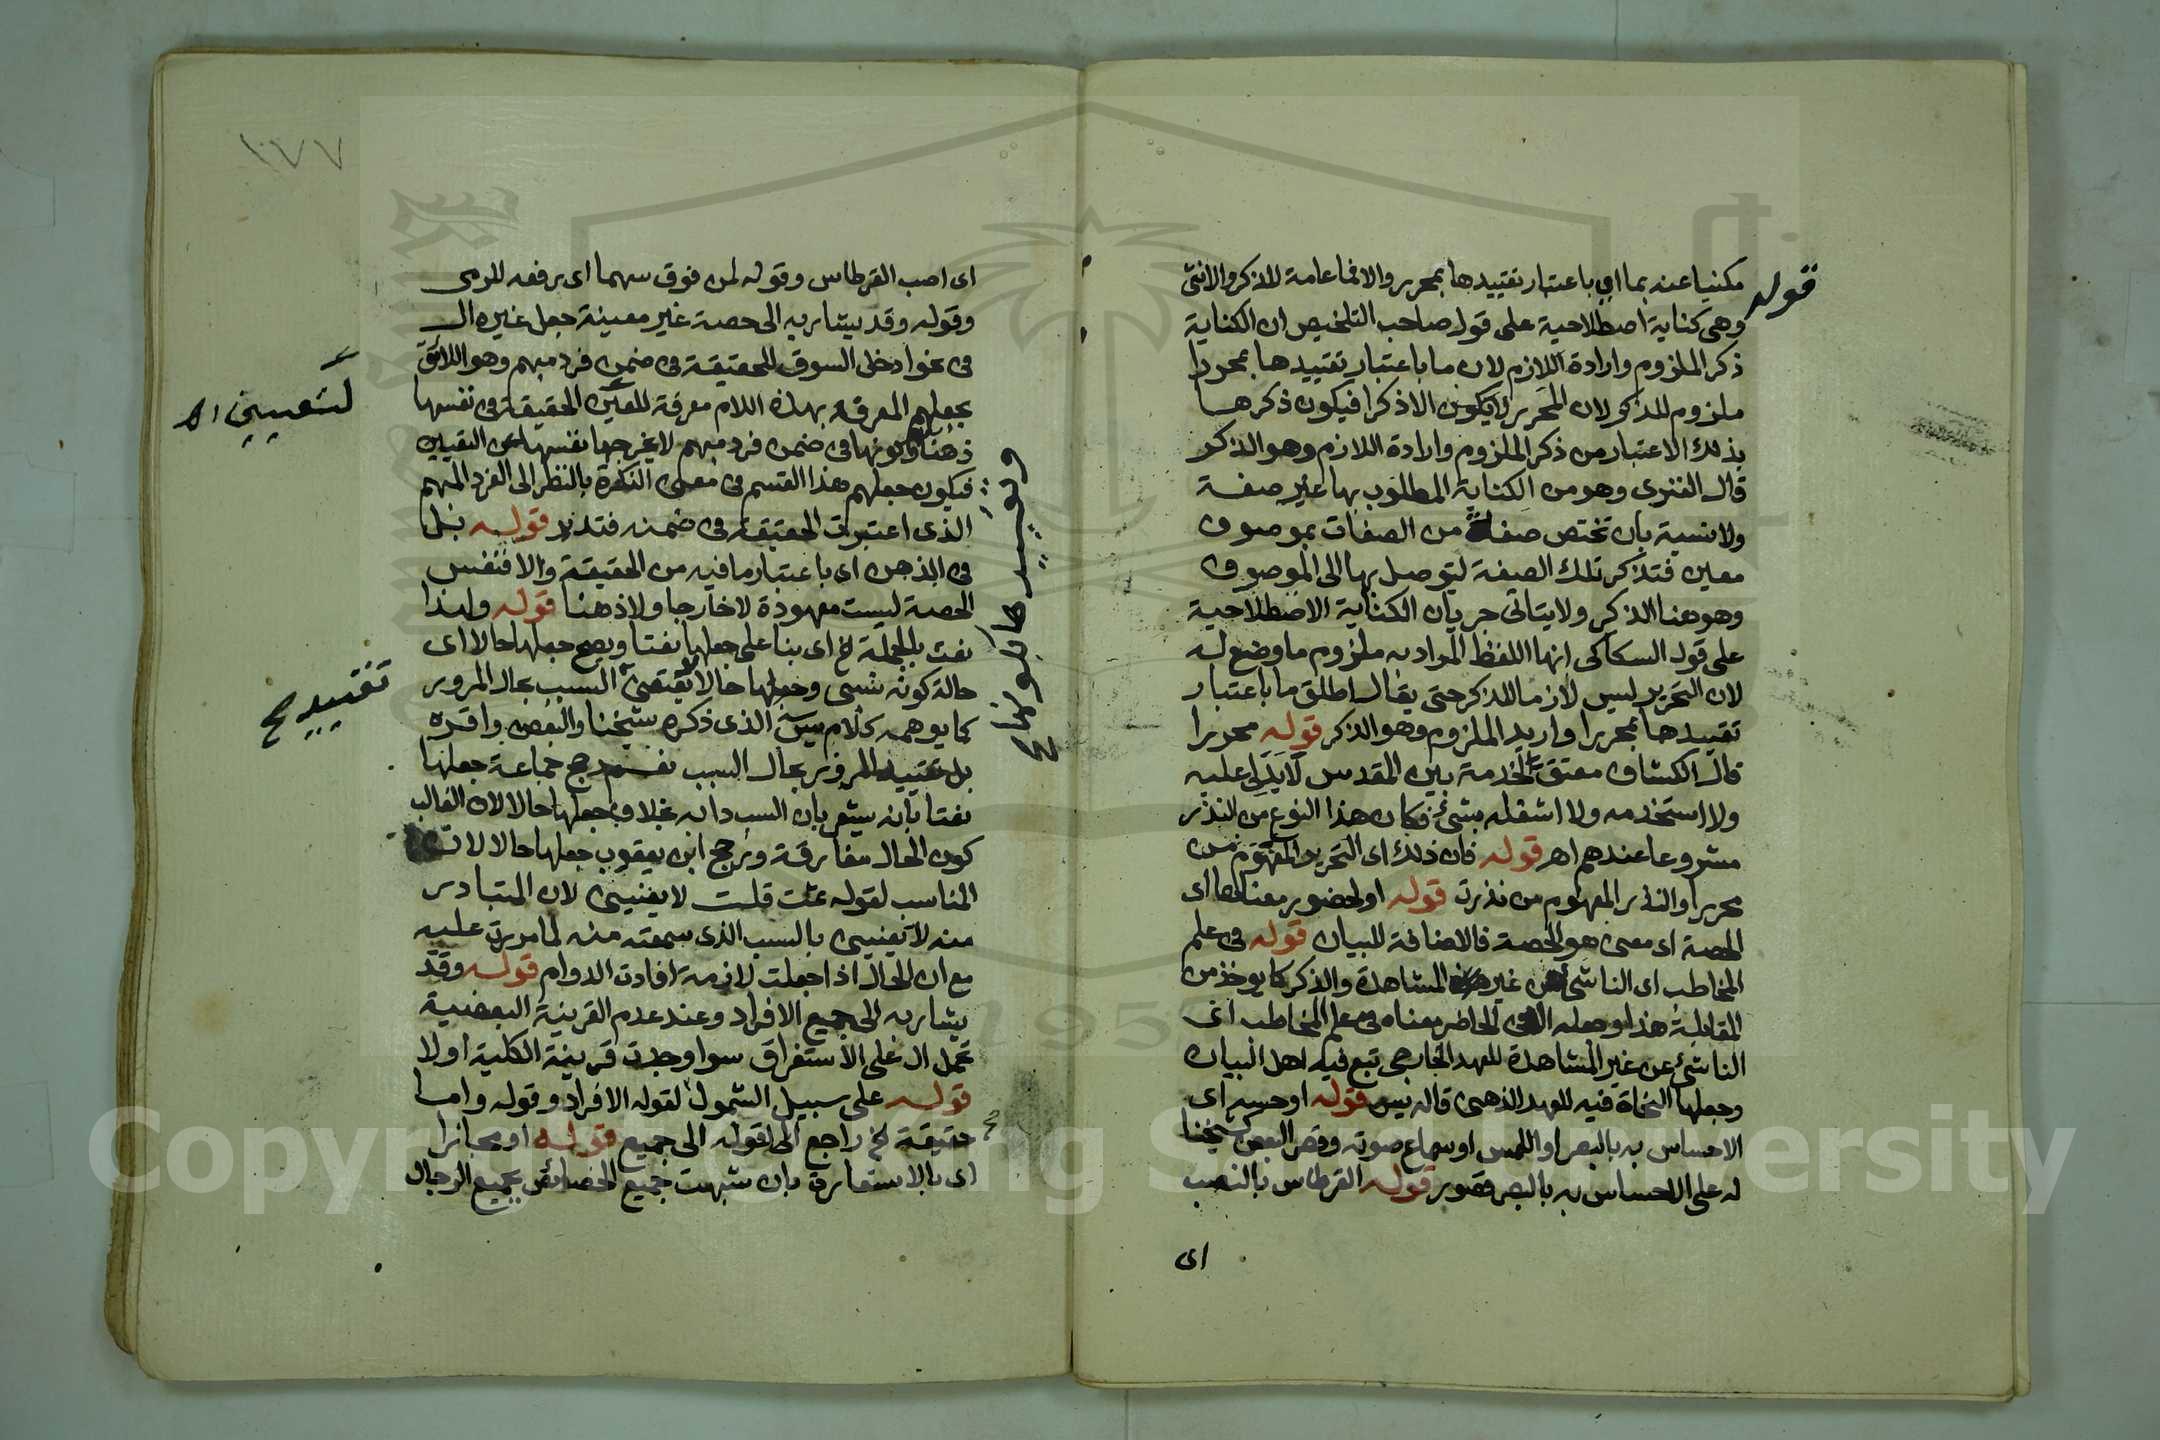 قوله
مكنيا عنه بما اي باعتبار تقييدها بمحررا والا فما عامة للذكر والانثى
وهى كناية اصطلاحية على قول صاحب التلخيص ان الكناية
ذكر الملزوم وارادة اللازم لان ما باعتبار تقييدها بمحررا
ملزوم للذكر لان المحرر لا يكون الا ذكرا فيكون ذكرها
بذلك الاعتبار من ذكر الملزوم وارادة اللازم وهو الذكر
قال الفنرى وهو من الكناية المطلوب بها غير صفة
ولا نسبة بان تختص صفة من الصفات بموصوف
معين فتذكر تلك الصفة ليتوصل بها الى الموصوف
وهو هنا الذكر ولا يتاتى جريان الكناية الاصطلاحية
على قول السكاكى انها اللفظ المراد به ملزوم ما وضع له
لان التحرير ليس لازما للذكر حتى يقال اطلق ما باعتبار
تقييدها بمحررا واريد الملزوم وهو الذكر قوله محررا
قال الكشاف معتق لخدمة بيت المقدس لا يد لى عليه
ولا استخدمه ولا اشغله بشئ فكان هذا النوع من النذر
مشروعا عندهم اهـ قوله فان ذلك اى التحرير المفهوم من
محررا والنذر المفهوم من نذرت قوله او لحضور معناها اى
الحصة اى معنى هو الحصة فالاضافة للبيان قوله فى علم
المخاطب اى الناشئ عن غير المشاهدة والذكر كما يوخذ من
المقابلة هذا وجعله التى للحاضر معناه فى علم المخاطب اى
الناشئ عن غير المشاهدة للعهد الخارجى تبع فيه اهل البيان
وجعلها النحاة فيه للعهد الذهنى قاله يس قوله او حسه اى
الاحساس به بالبصر او اللمس او سماع صوته وقصر البعض كشيخنا
له على الاحساس به بالبصر قصور قوله القرطاس بالنصب
اى
١٧٧
اى اصب القرطاس وقوله لمن فوق سهما اى يرفعه للرمى
وقوله وقد يشار به الى حصة غير معينة جعل غيره ال
فى نحو ادخل السوق للحقيقة فى ضمن فرد مبهم وهو اللائق
بجعلهم المعرف بهذه اللام معرفة لتعين الحقيقة فى نفسها
ذهنا وكونها فى ضمن فرد مبهم لا يخرجها نفسها عن التعيين
فيكون جعلهم هذا القسم فى معنى النكرة بالنظر الى الفرد المبهم
الذى اعتبرت الحقيقة فى ضمنه فتدبر قوله بل
فى الذهن اى باعتبار ما فيه من الحقيقة والا فنفس
الحصة ليست معهودة لا خارجا ولا ذهنا قوله ولهذا
نعت بالجملة الخ اى بناء على جعلها نعتا ويصح جعلها حالا اى
حالة كونه يسبنى وجعلها حالا لا يقتضى السبب بحال المرور
كما يوهمه كلام يس الذى ذكره شيخنا والبعض واقره
بل تقييد المرور بحال السبب نعم رجح جماعة جعلها
نعتا بانه يشعر بان السب دابه بخلاف جعلها حالا لان الغالب
كون الحال مفارقة ورجح ابن يعقوب جعلها حالا لانه
المناسب لقوله ثمت قلت لا يعنينى لان المتبادر
منه لا يعنينى بالسب الذى سمعته منه لما مررت عليه
مع ان الحال اذا جعلت لازمة افادت الدوام قوله وقد
يشار به الى جميع الافراد وعند عدم القرينة البعضية
تحمل ال على الاستغراق سوا وجدت قرينة الكلية اولا
قوله على سبيل الشمول لقوله الافراد وقوله واما
حقيقة الخ راجع الى قوله الى جميع قوله او مجازا
اى بالاستعارة بان شبهت جميع الخصائص بجميع الرجال
لتعيين اهـ
تقييد صح